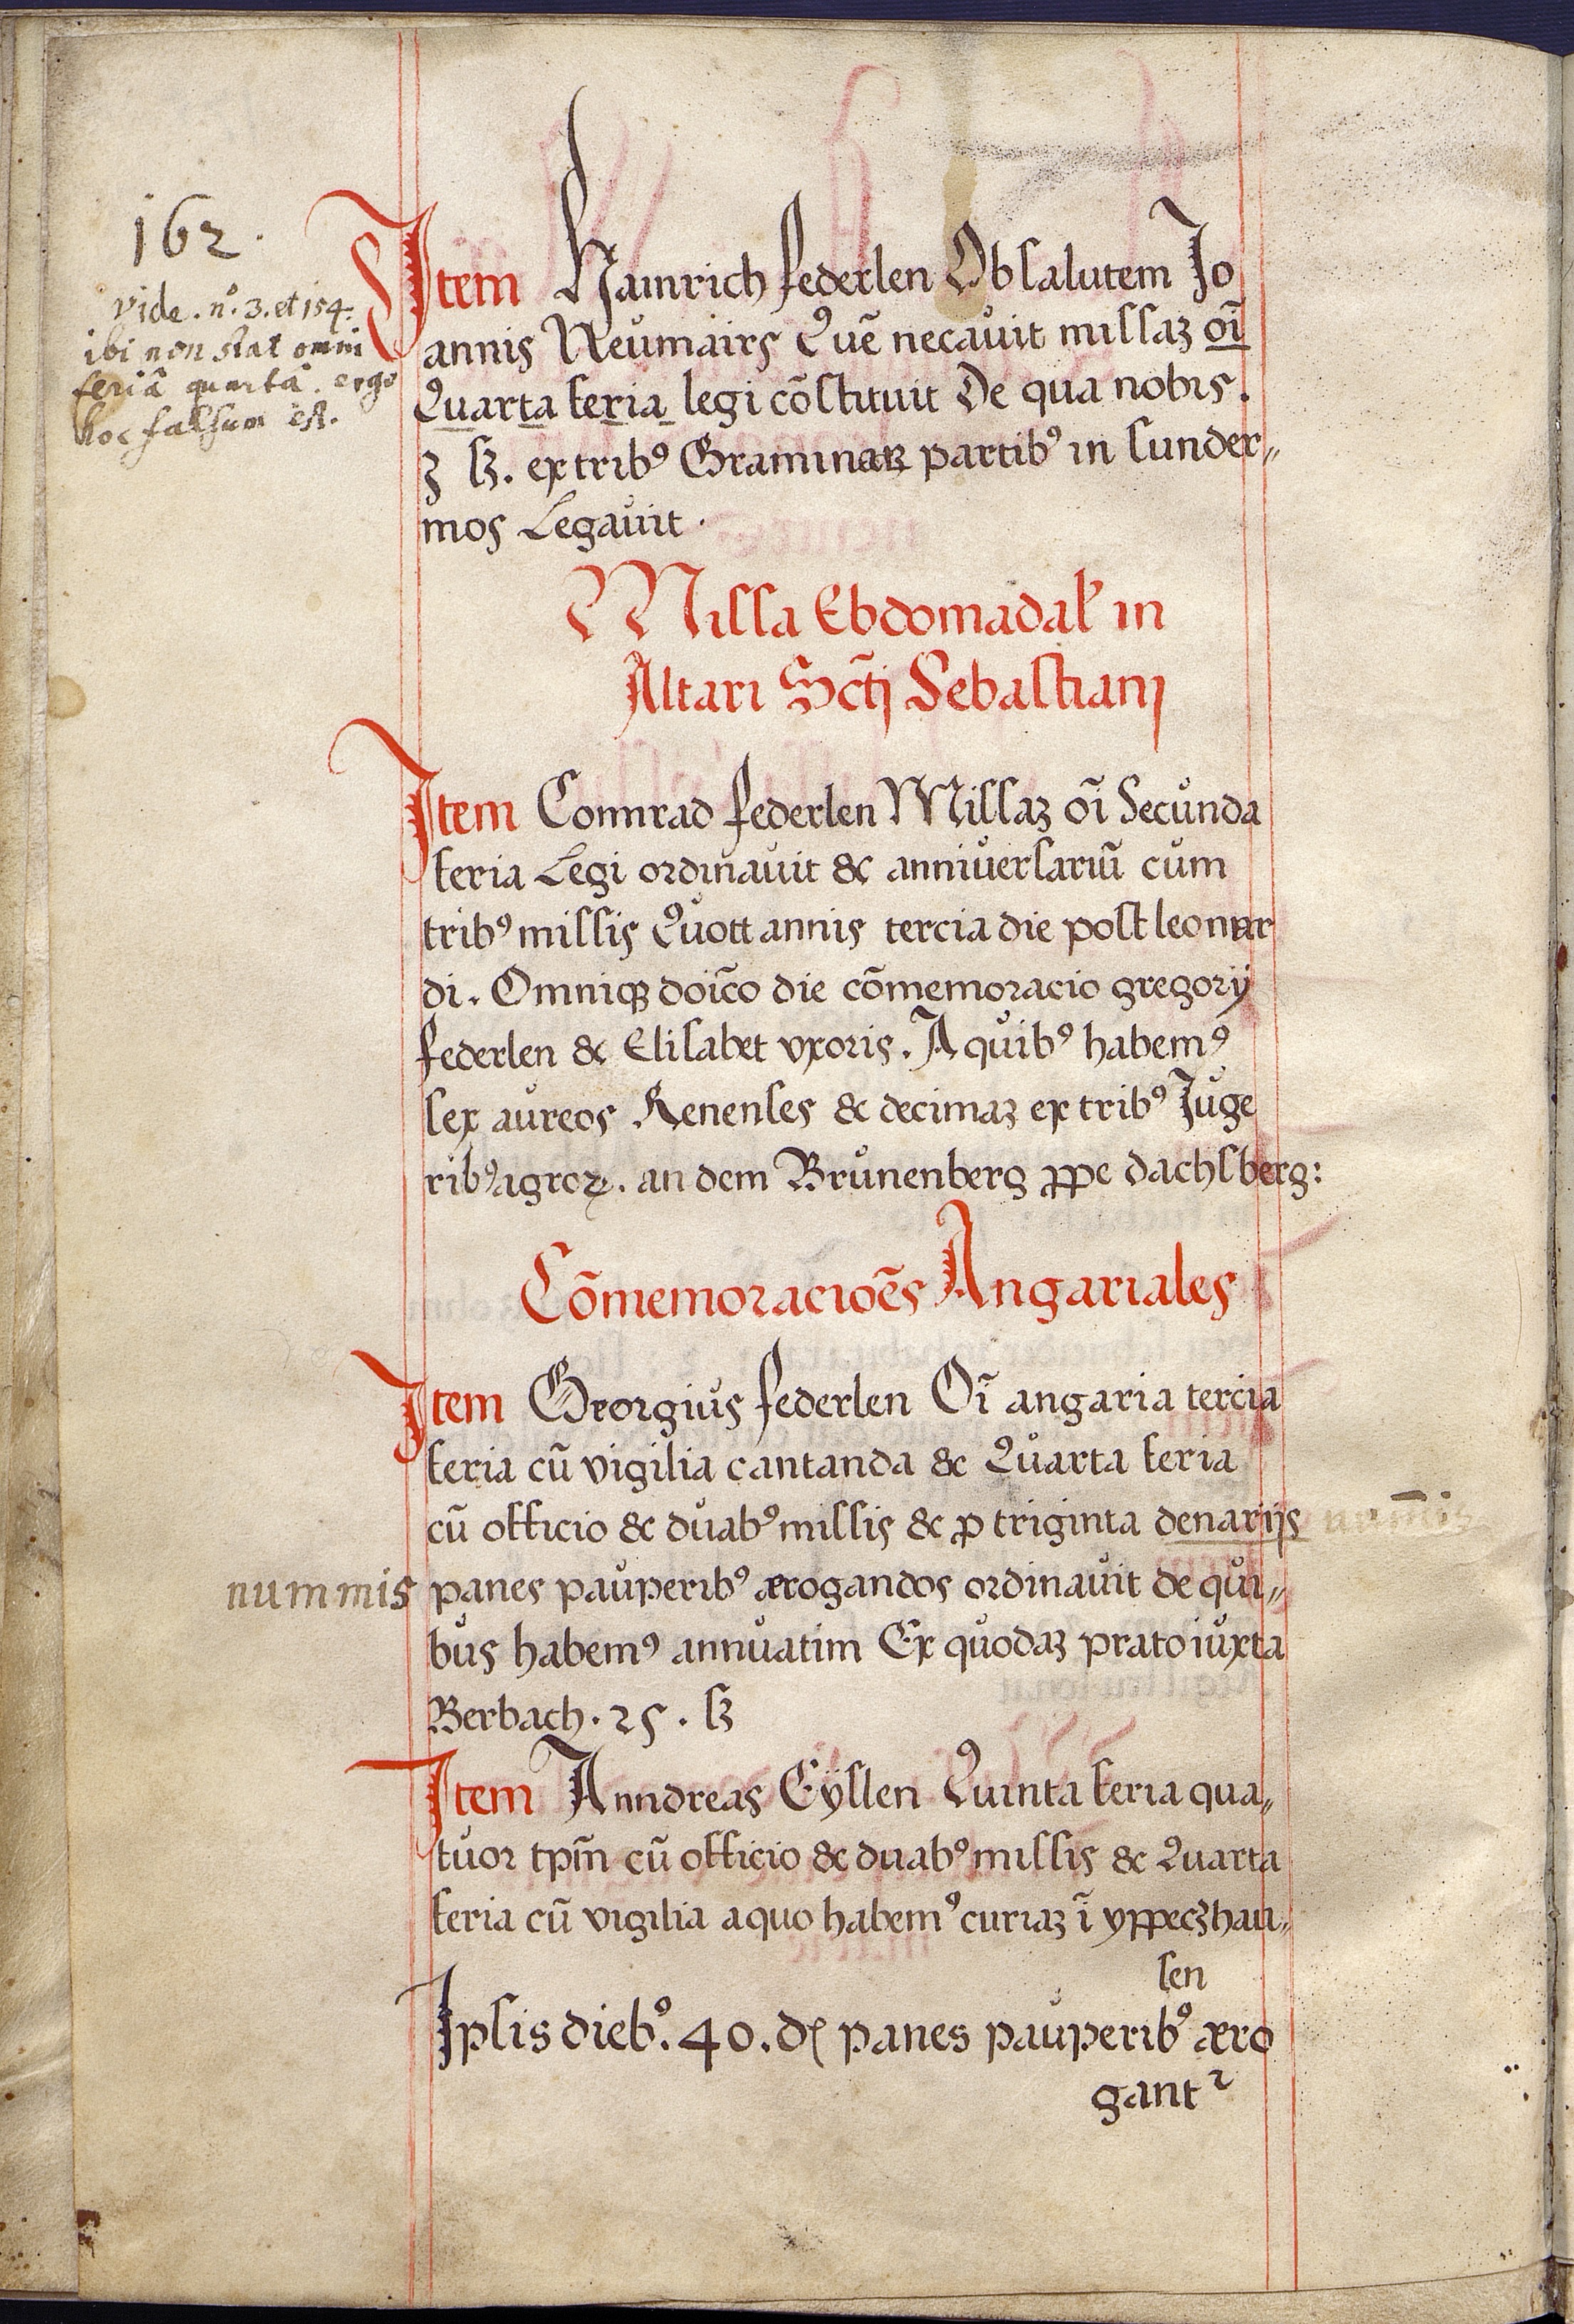 162.
vide. nº. 3. et 154.
ibi non stat omni
feriâ quartâ. ergo
hoc falsum est.
Item Hainrich federlen Ob salutem Jo
annis Neumairs Quē necavit missaȝ oī
Quarta feria legi cōstituit De qua nobis.
ȝ ſȝ. ex tribꝰ Graminaꝝ partibꝰ in sunder„
mos Legavit.
Missa Ebdomadal' in
Altari Sc̄tj Sebastianj
Item Connrad federlen Missaȝ oī Secunda
feria Legi ordinavit & anniversariū cum
tribꝰ missis Quott annis tercia die post leonnar
di. Omniqȝ doīco die cōmemoracio gregorÿ
federlen & Elisabet vxoris. A quibꝰ habemꝰ
sex aureos Renenses & decimaȝ ex tribꝰ Juge
ribꝰ agroꝝ. an dem Brunenberg ꝓpe dachsberg:
Cōmemoracioēs Angariales
Item Georgius federlen Oī angaria tercia
feria cū vigilia cantanda & Quarta feria
cū officio & duabꝰ missis & ꝓ triginta denarijs
nummis panes pauperibꝰ ærogandos ordinavit de qui„
bus habemꝰ annuatim Ex quodaȝ prato iuxta
Berbach. 25. ſȝ
Item Anndreas Eyslen Quinta feria qua„
tuor tpm̄ cū officio & duabꝰ missis & Quarta
feria cū vigilia a quo habemꝰ curiaȝ ī yppeczhau„
sen
Ipsis diebꝰ. 40. dẜ panes pauperibꝰ æro
gantᷣ